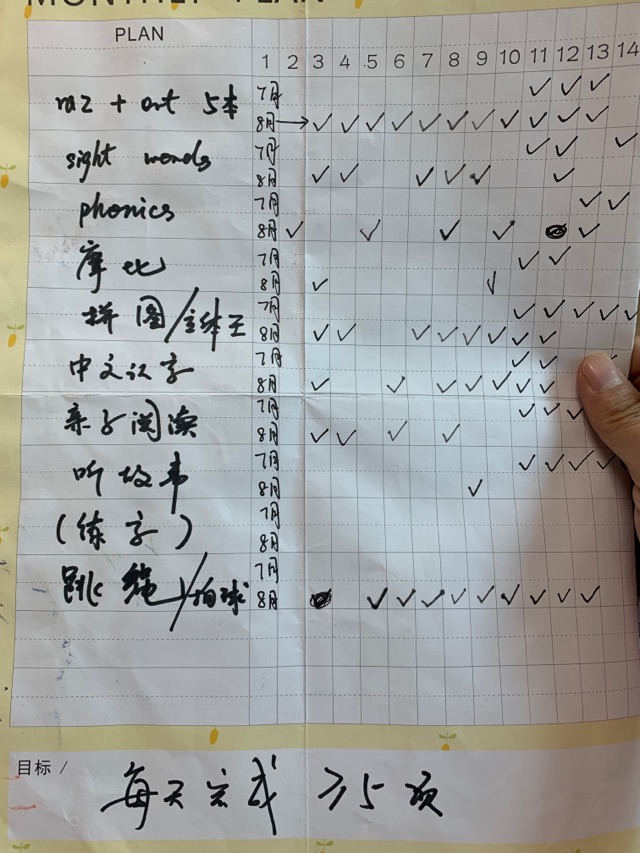 MONTHLY PLAN
PLAN 1 2 3 4 5 6 7 8 9 10 11 12 13 14
7月
raz + ort 5本 8月
7月
sight words 8月
7月
phonics 8月
7月
摩比 8月
7月
拼图/主体王 8月
7月
中文识字 8月
7月
亲子阅读 8月
7月
听故事 8月
7月
(练字) 8月
7月
跳绳/拍球 8月
目标 /
每天完成 ≥5项